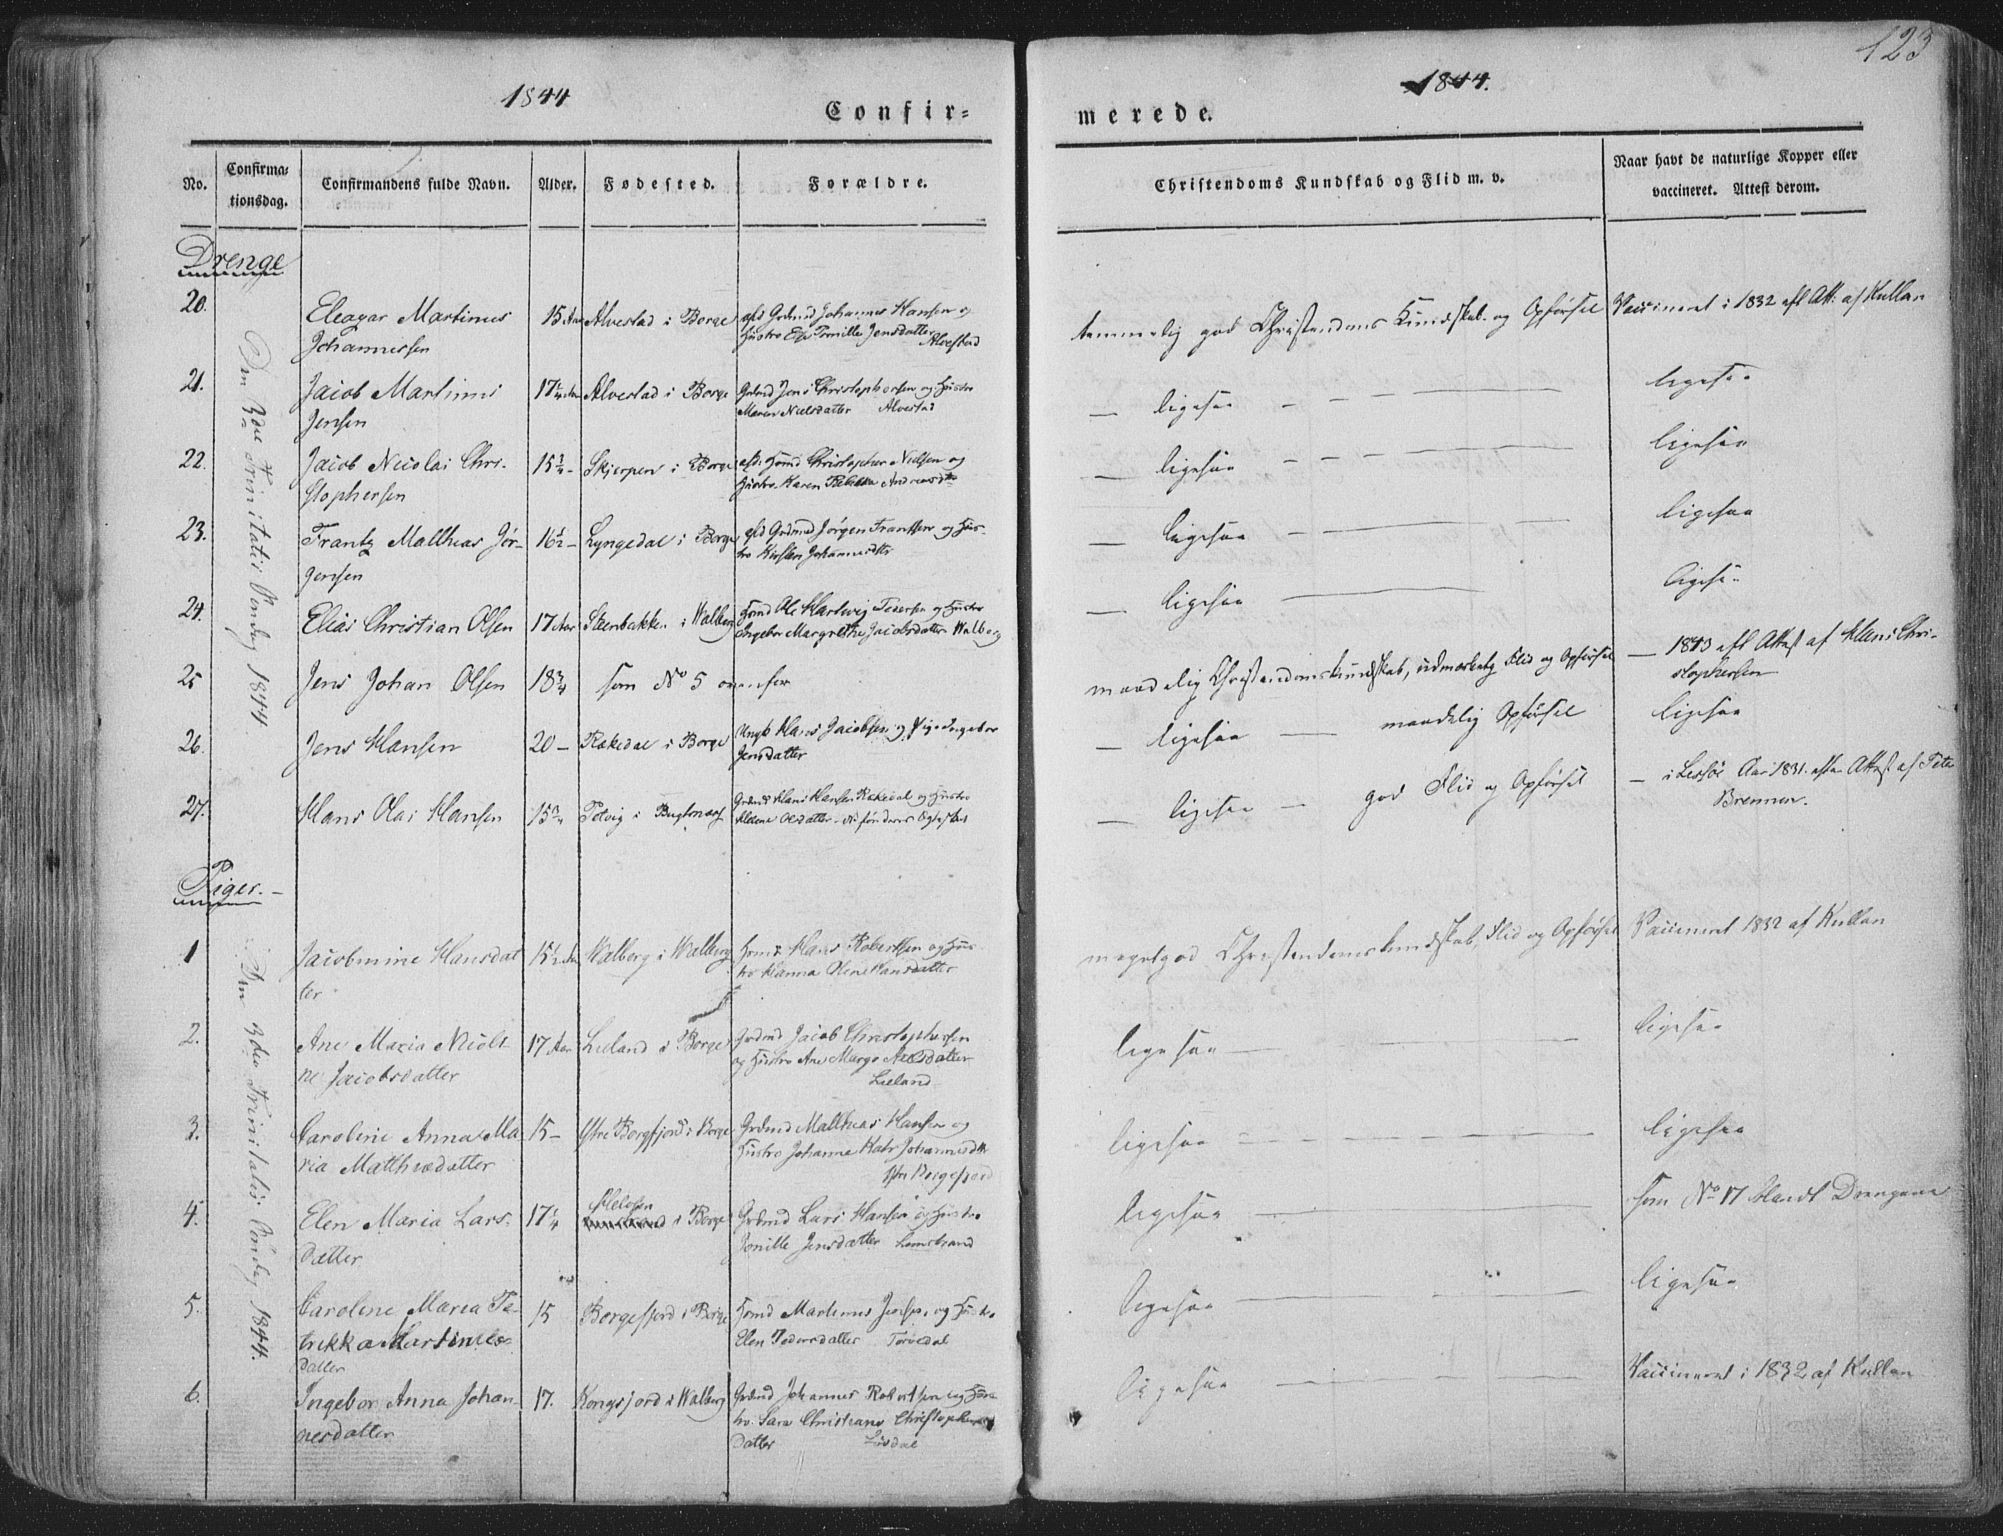 123
1844
1844.
Confir=
merede.
No.
Confirma-
tionsdag.
Confirmandens fulde Navn.
Alder.
Fødested.
Forældre.
Christendoms Kundskab og Flid m. v.
Naar havt de naturlige Kopper eller
vaccineret. Attest derom.
Drenge
Den 3die Trinitatis Søndag 1844
20.
Eleazar Martinus
Johannessen
15 Aar
Alvestad i Borge
Grdmd Johannes Hansen og
Hustru Pernille Jensdatter
Alvestad
temmelig god Christendoms Kundskab og Opførsel
Vaccineret i 1832 efl Att. af Kullan
21.
Jacob Martinus
Jensen
17 1/4 Aar
Alvestad i Borge
Grdmd Jens Christophersen og Hustro
Maren Nielsdatter Alvestad
— ligesaa — — —
ligesaa
22.
Jacob Nicolai Chri-
stophersen
15 3/4 –
Skjerpen i Borge
afd. Hsmd Christopher Nielsen og
Hustro Karen Rebekka Andreasdtr
— ligesaa — — —
ligesaa
23.
Frantz Matthias Jør-
gensen
16 1/2 –
Lyngedal i Borge
afd Grdmd Jørgen Frantsen og Hus-
tro Kirsten Johannesdtr
— ligesaa — — —
ligesaa
24.
Elias Christian Olsen
17 Aar
Steenbakken i Walberg
Hsmd Ole Hartvig Pedersen og Hustro
Ingebor Margrethe Jacobsdatter Walberg
— ligesaa — — —
ligesaa
25
Jens Johan Olsen
18 3/4
som No 5 ovenfor
maadelig Christendomskundskab, udmærket Flid og Opførsel
— 1843 efl Attest af Hans Chri-
stophersen
26.
Jens Hansen
20 –
Rakedal i Borge
Ungk Hans Jacobsen og Pige Ingebor
Jensdatter
— ligesaa — maadelig Opførsel
ligesaa
27.
Hans Olai Hansen
15 3/4
Petvig i Bugsnæs
Grdmd Hans Hansen Rakedal og Hustro
Olsdatter
— ligesaa — god Flid og Opførsel
— i Aar 1831. efter Attest af Peter
Brennen.
Piger. –
Den 3die Trinitatis Søndag 1844.
1
Jacobmine Hansdat
ter
15 1/2 Aar
Walberg i Walberg
Hsmd Hans Robertsen og Hus-
tro Hanna Oline Hansdatter
megetgod Christendomskundskab, Flid og Opførsel
Vaccineret 1832 af Kullan
2.
Ane Maria Nicoli-
ne Jacobsdatter
17 Aar
Lieland i Borge
Grdmd Jacob Christophersen
og Hustro Ane Margr Axelsdatter
Lieland
ligesaa — — —
ligesaa
3.
Caroline Anna Ma
ria Mathisdatter
15 –
Ytre Borgfjord i Borge
Grdmd Matthias Hansen og
Hustro Johanne Katr Johannesdtr
Ytre Borgefjord
ligesaa — — —
ligesaa
4.
Elen Maria Lars-
datter
17 1/4
i Borge
Grdmd Lars Hansen og Hustro
Pernille Jensdatter Limstrand
ligesaa — — —
som No 17 blandt Drengene
5.
Caroline Maria Pe-
trikka Martinus-
datter
15
Borgefjord i Borge
Hsmd Martinus Jensen og Hustro
Elen Pedersdatter Torvdal
ligesaa — — —
ligesaa
6.
Ingebor Anna Johan-
nesdatter
17.
Kongsjord i Walberg
Grdmd Johannes Robertsen og Hus-
tro Sara Christiana Christophers-
datter
ligesaa — — —
Vaccineret i 1832 af Kullan